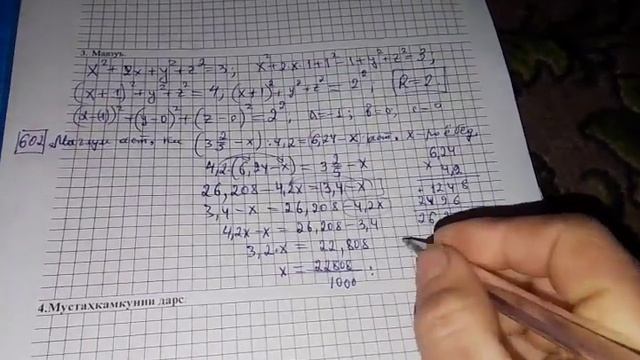 3. Машъ
x²+2x+y²+z²=3; x²+2x·1+1²-1+y²+z²=3;
(x+1)²+y²+z²=4, (x+1)²+y²+z²=2², R=2
(x-(-1))²+(y-0)²+(z-0)²=2², a=-1; b=0, c=0
602 Маълум аст, ки (3 2/5 -x):4,2=6,24-x
4,2·(6,24-x)=3 2/5 -x
26,208-4,2x=3,4-x
3,4-x=26,208-4,2x
4,2x-x=26,208-3,4
3,2·x=22,808
x=22808/1000 :
6,24
x 4,2
+1248
2496
26,2
4.Мустаҳкамкунии дарс.